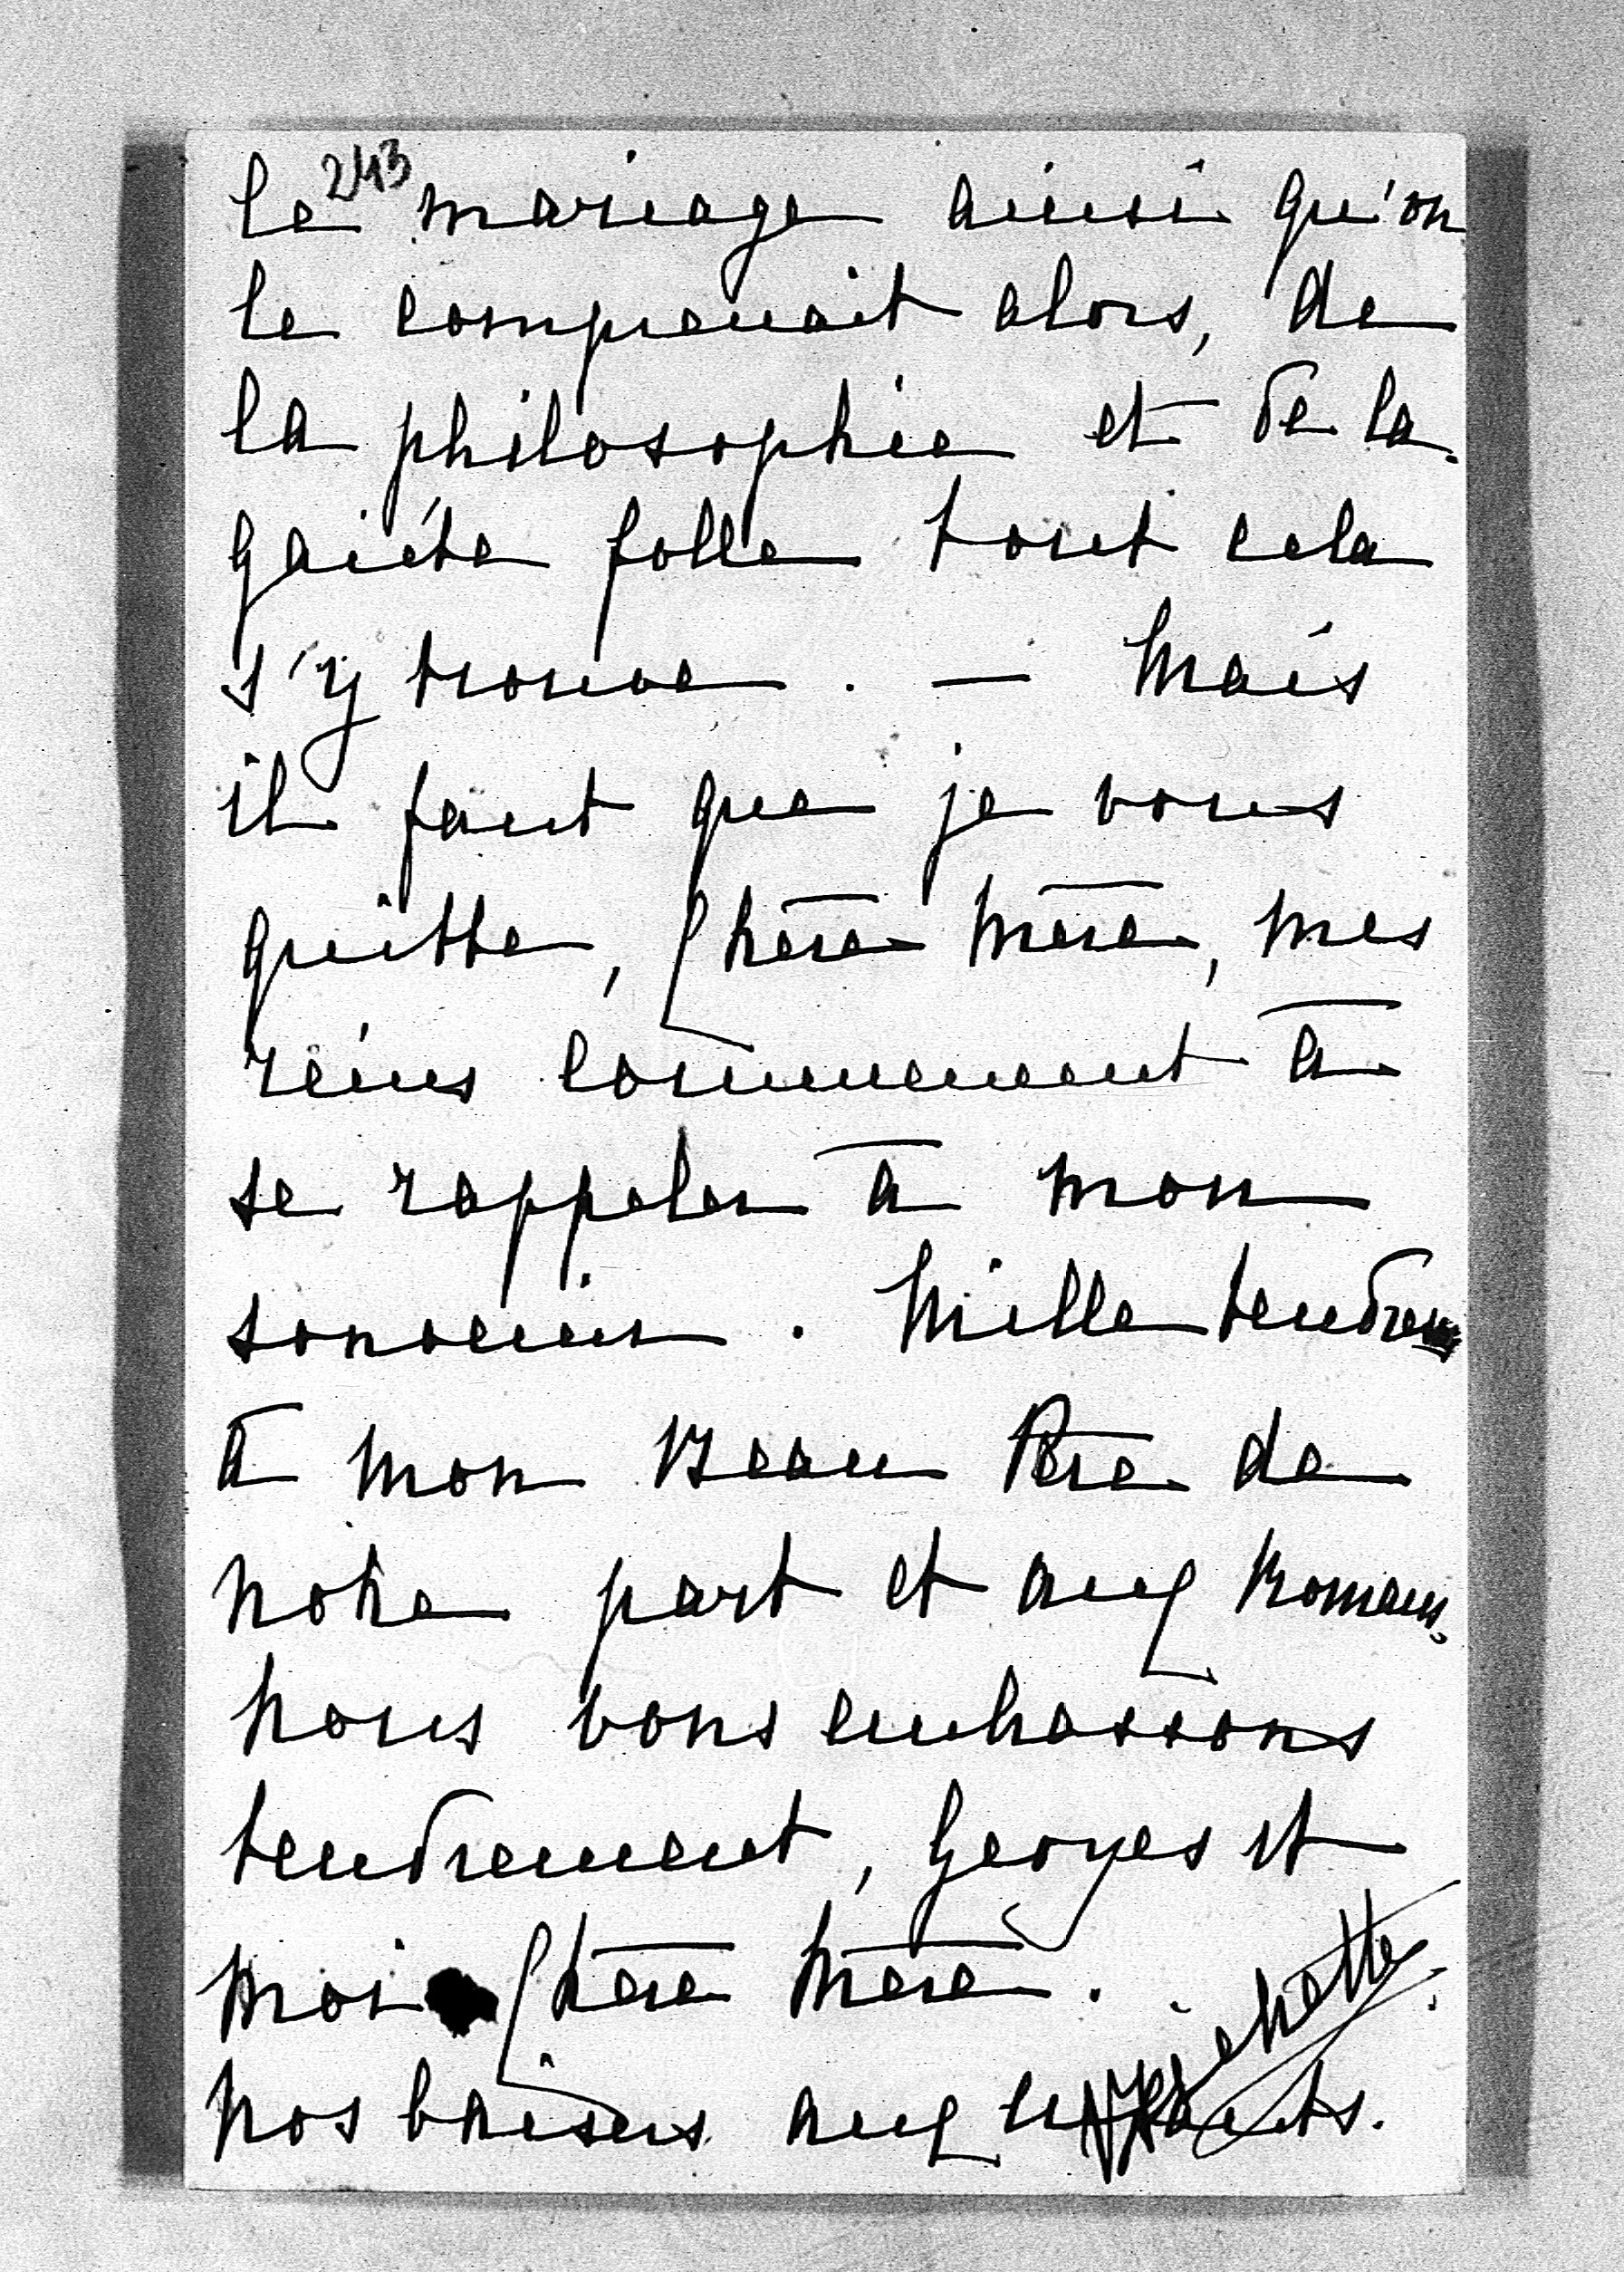 243
le mariage ainsi qu'on
le comprenait alors, de
la philosophie et de la
gaiéte folle tout cela
s'y trouve. — Mais
il faut que je vous
quitte, Chère Mère, mes
reins commencent à
se rappeler à mon
souvenir. Mille tendresses
à mon Beau Père de
notre part et aux Romain.
Nous vous embrassons
tendrement, Georges et
moi Chère Mère.
Nos baisers aux enfants.